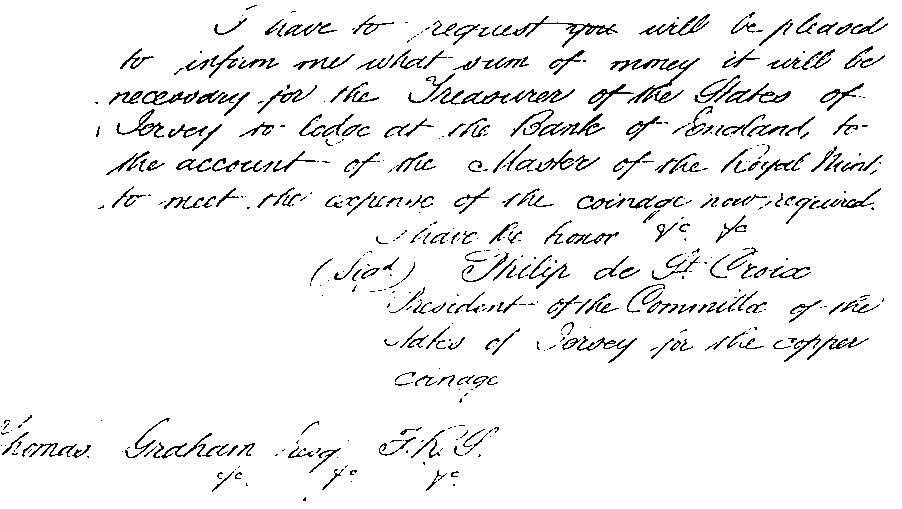 I have to request you will be pleased
to inform me what sum of money it will be
necessary for the Treasurer of the States of
Jersey to lodge at the Bank of England, to
the account of the Master of the Royal Mint,
to meet the expense of the coinage now required.
I have the honor &c. &c
(Sigd.) Philip de St. Croix
President of the Committee of the
States of Jersey for the copper
coinage
Thomas Graham Esq. F.R.S.
&c. &c. &c.